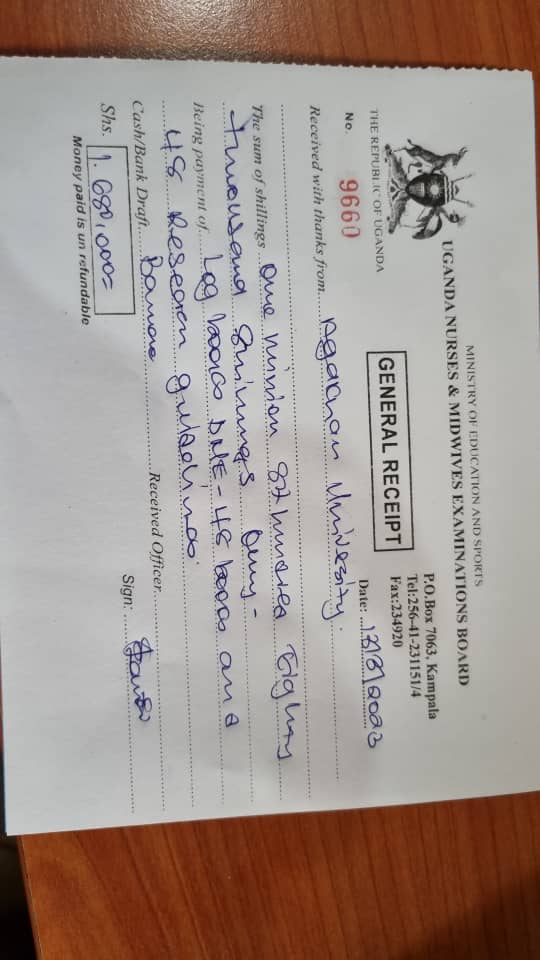 MINISTRY OF EDUCATION AND SPORTS
UGANDA NURSES & MIDWIVES EXAMINATIONS BOARD
P.O.Box 7063, Kampala
Tel:256-41-231151/4
Fax:234920
THE REPUBLIC OF UGANDA
GENERAL RECEIPT
No. 9660
Date:
Received with thanks from Agakhan University.
The sum of shillings One million six hundred Eighty
thousand Shillings Only-
Being payment of Log books DNE - 48 books and
48 Research guidelines.
Cash/Bank Draft Received Officer
Shs. 1,680,000=
Sign:
Money paid is un refundable